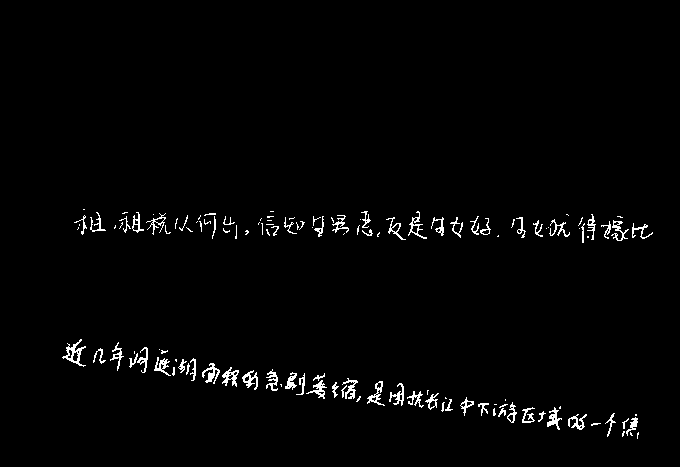 租,租税从何出,信知生男恶,反是生女好,生女犹得嫁比
近几年洞庭湖面积的急剧萎缩,是困扰长江中下游区域的一个焦